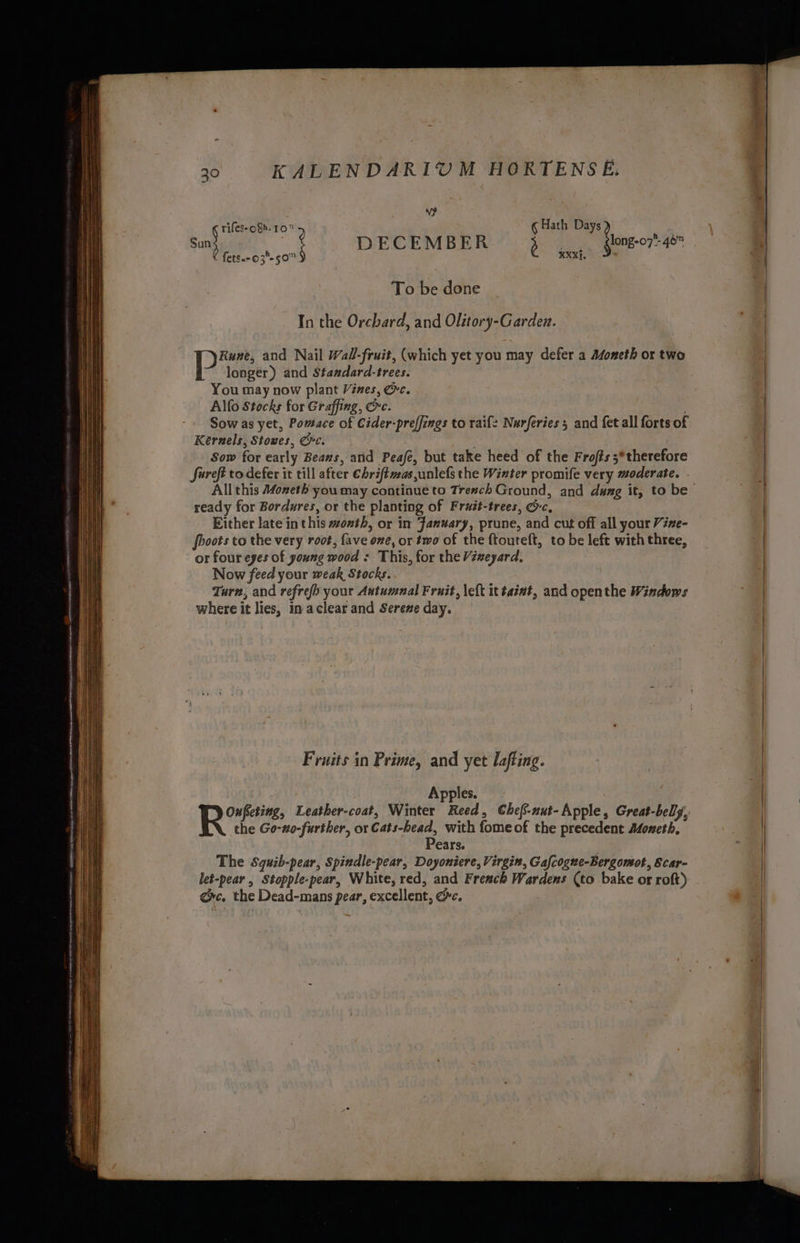 30 KALENDARIUM HORTENSE.
♑
Sun { riſes--08h. 10m } DECEMBER { Hath Days } long-07h- 40m
{ ſets--03h-50m } xxxj.
To be done
In the Orchard, and Olitory-Garden.
PRune, and Nail Wall-fruit, (which yet you may defer a Moneth or two
longer) and Standard-trees.
You may now plant Vines, &c.
Alſo Stocks for Graffing, &c.
Sow as yet, Pomace of Cider-preſſings to raiſe Nurſeries; and ſet all ſorts of
Kernels, Stones, &c.
Sow for early Beans, and Peaſe, but take heed of the Froſts; therefore
ſureſt to defer it till after Chriſtmas, unleſs the Winter promiſe very moderate.
All this Moneth you may continue to Trench Ground, and dung it, to be
ready for Bordures, or the planting of Fruit-trees, &c.
Either late in this month, or in January, prune, and cut off all your Vine-
ſhoots to the very root, ſave one, or two of the ſtouteſt, to be left with three,
or four eyes of young wood: This, for the Vineyard.
Now feed your weak Stocks.
Turn, and refreſh your Autumnal Fruit, leſt it taint, and open the Windows
where it lies, in a clear and Serene day.
Fruits in Prime, and yet laſting.
Apples.
ROuſſeting, Leather-coat, Winter Reed, Cheſt-nut-Apple, Great-belly,
the Go-no-further, or Cats-head, with ſome of the precedent Moneth.
Pears.
The Squib-pear, Spindle-pear, Doyoniere, Virgin, Gaſcogne-Bergomot, Scar-
let-pear, Stopple-pear, White, red, and French Wardens (to bake or roſt)
&c. the Dead-mans pear, excellent, &c.